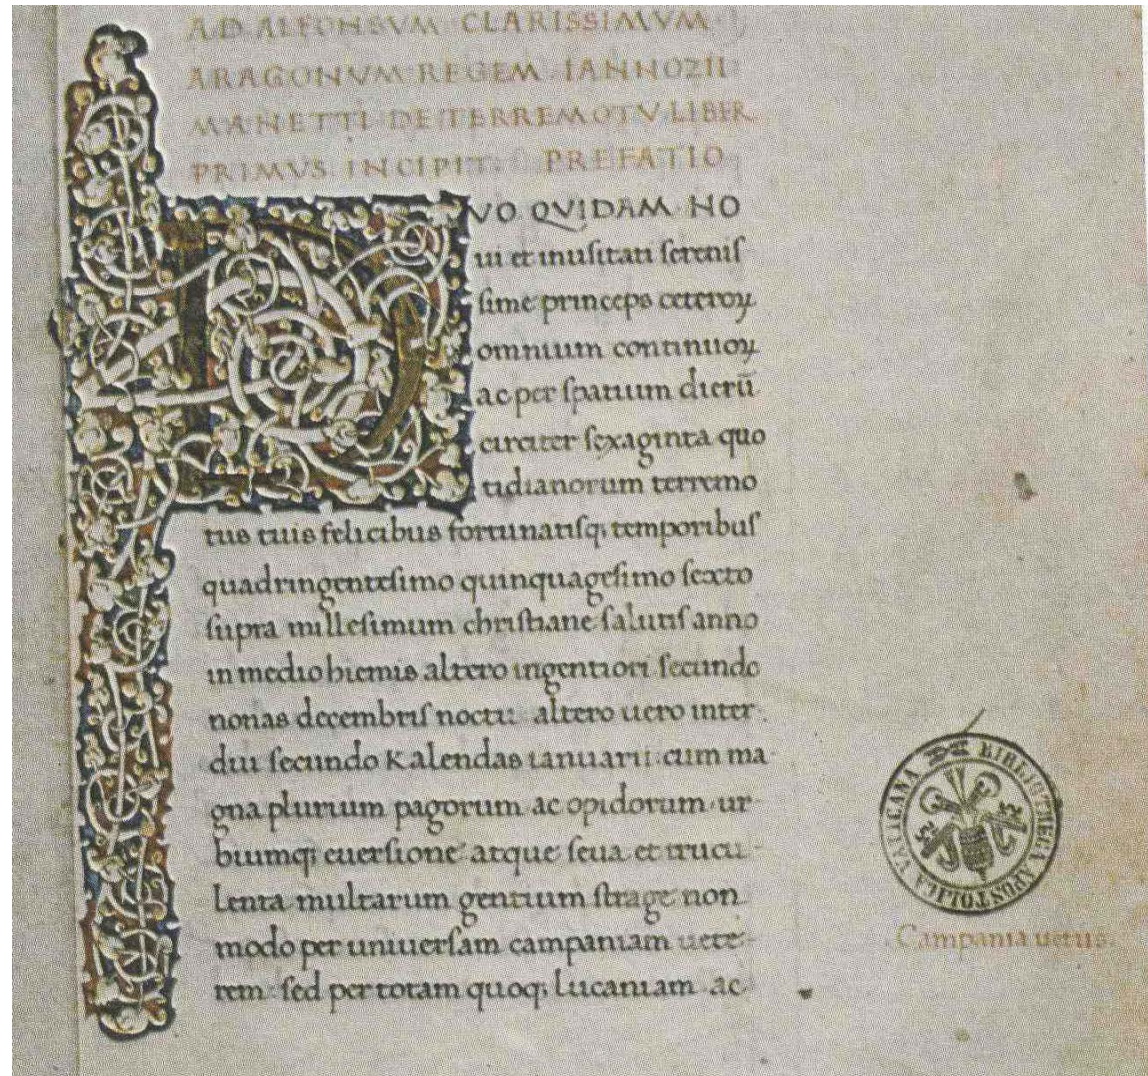 AD ALFONSVM CLARISSIMVM
ARAGONVM REGEM IANNOZII
MANETTI DE TERREMOTV LIBER
PRIMVS INCIPIT. PREFATIO
DVO QVIDAM NO
ui et inuſitati ſereniſ
ſime princeps ceteroꝝ
omnium continuoꝝ
ac per ſpatium dierū
circiter ſexaginta quo
tidianorum terremo
tus tuis felicibus fortunatiſqꝫ temporibuſ
quadringenteſimo quinquageſimo ſexto
ſupra milleſimum chriſtiane ſalutiſ anno
in medio hiemis altero ingentiori ſecundo
nonas decembriſ noctu altero uero inter
diu ſecundo Kalendas ianuarii cum ma
gna plurium pagorum ac opidorum ur
biumqꝫ euerſione atque ſeua et trucu
lenta multarum gentium ſtrage non
modo per uniuerſam campaniam uete
rem ſed per totam quoqꝫ lucaniam ac
BIBLIOTHECA APOSTOLICA VATICANA
Campania uetus.